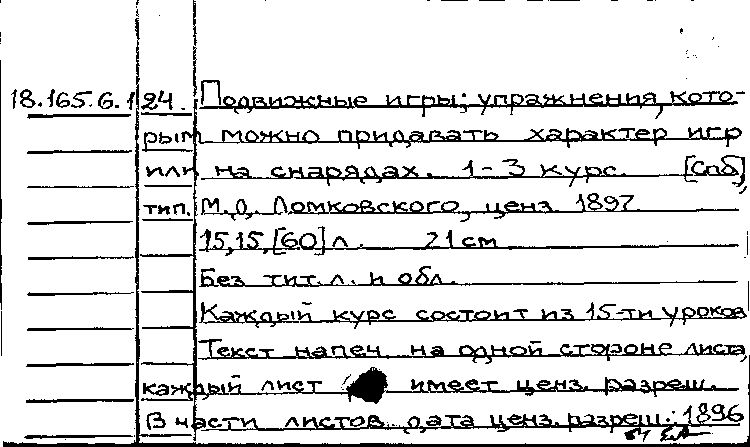 18.165.6.124. Подвижные игры; упражнения, кото-
рым можно придавать характер игр
или на снарядах. 1-3 курс. [Спб],
тип. М.Д. Ломковского, ценз. 1897
15,15,[60] л. 21 см
Без тит. л. и обл.
Каждый курс состоит из 15-ти уроков
Текст напеч. на одной стороне листа,
каждый лист имеет ценз. разреш.
В части листов дата ценз. разреш.: 1896